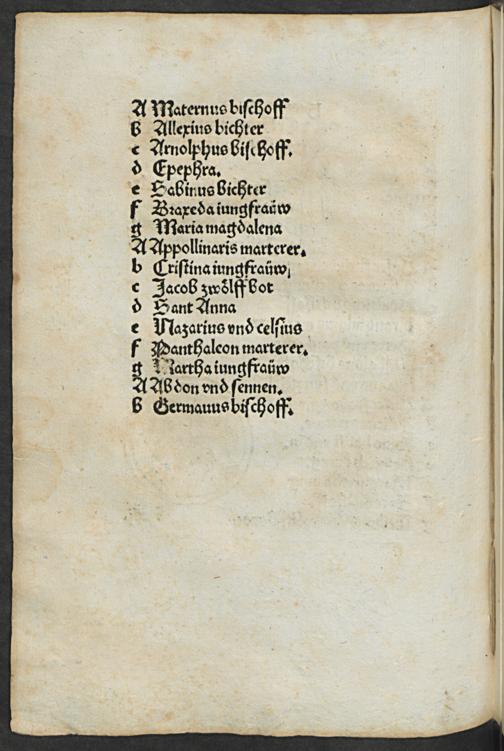 A Maternus bischoff
B Allexius bichter
c Arnolphus Bischoff.
d Epephra.
e Sabinus Bichter
f Braxeda iungfraüw
g Maria magdalena
A Appollinaris marterer.
b Cristina iungfraüw,
c Jacob zwölff bot
d Sant Anna
e Nazarius vnd celsius
f Panthaleon marterer.
g Martha iungfraüw
A Abdon vnd sennen.
B Germauus bischoff.